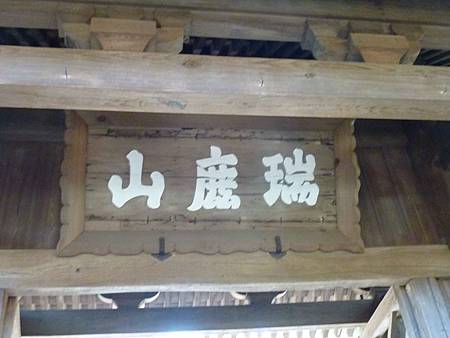 瑞鹿山